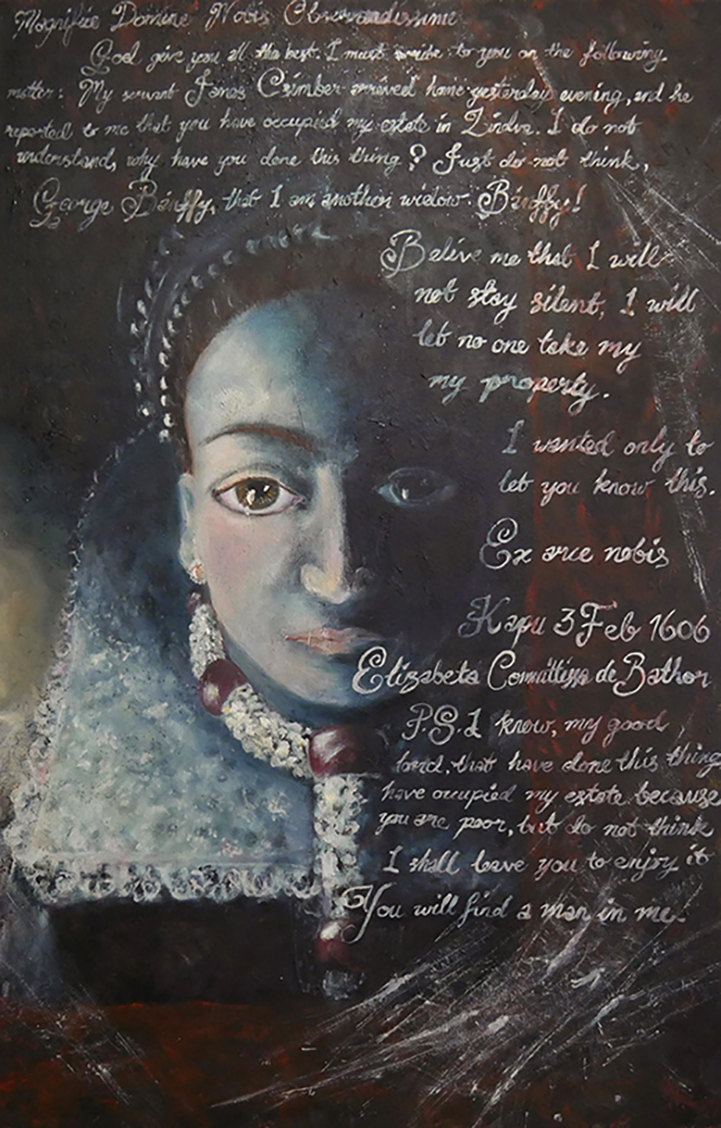 Magnifice Domine Nobis Observandissime
God give you all the best. I must write to you on the following
matter: My servant Janos Czimber arrived home yesterday evening, and he
reported to me that you have occupied my estate in Lindva. I do not
understand, why have you done this thing? Just do not think,
George Banffy, that I am another widow Banffy!
Belive me that I will
not stay silent, I will
let no one take my
my property.
I wanted only to
let you know this.
Ex arce nobis
Kapu 3 Feb 1606
Elizabeta de Bathor
P.S. I know, my good
lord, that have done this thing
have occupied my estate because
you are poor, but do not think
I shall leave you to enjoy it
You will find a man in me.